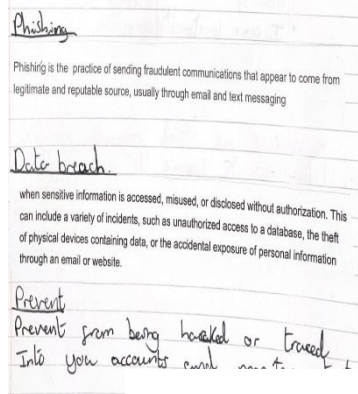 Phishing
Phishing is the practice of sending fraudulent communications that appear to come from
legitimate and reputable source, usually through email and text messaging
Data breach.
when sensitive information is accessed, misused, or disclosed without authorization. This
can include a variety of incidents, such as unauthorized access to a database, the theft
of physical devices containing data, or the accidental exposure of personal information
through an email or website.
Prevent
Prevent from being hacked or traced
Into your accounts and